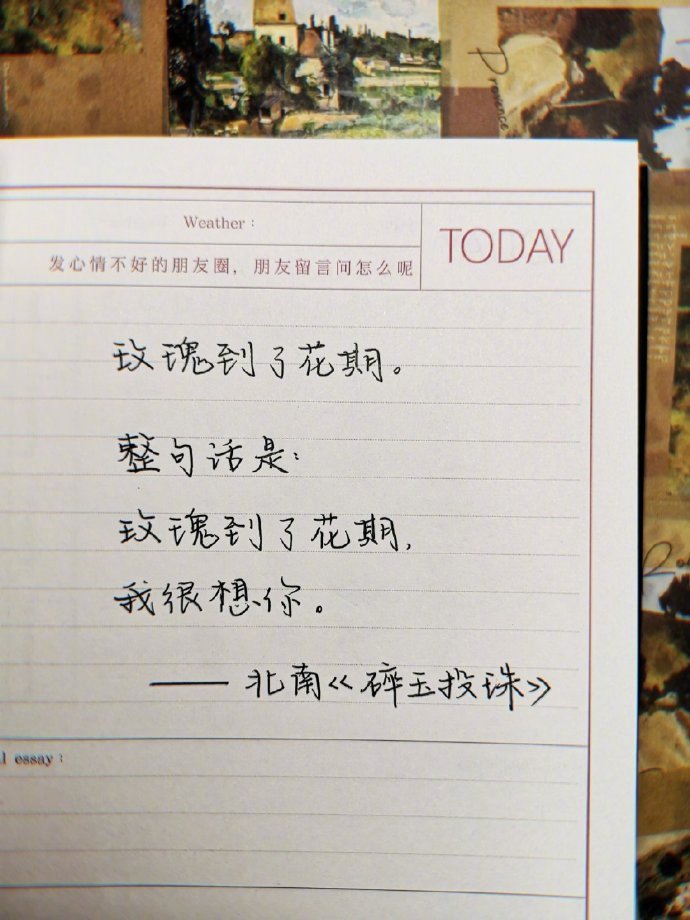 Provence
Weather：
TODAY
发心情不好的朋友圈，朋友留言问怎么呢
玫瑰到了花期。
整句话是：
玫瑰到了花期，
我很想你。
——北南《碎玉投珠》
l essay：